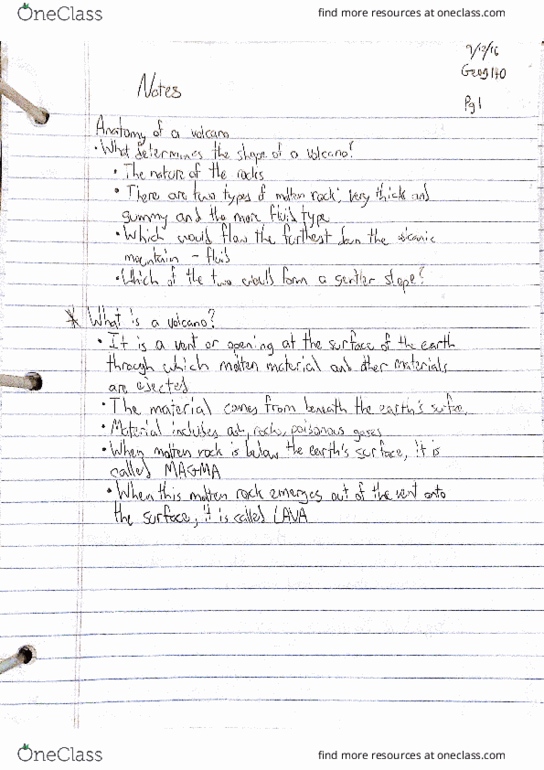 OneClass
find more resources at oneclass.com
Geog 140
Notes
Pg 1
Anatomy of a volcano
• What determines the shape of a volcano?
• The nature of the rocks
• There are two types of molten rock; very thick and
gummy and the more fluid type
• Which would flow the furthest down the volcanic
mountain - fluid
• Which of the two would form a gentler slope?
What is a volcano?
• It is a vent or opening at the surface of the earth
through which molten material and other materials
are ejected
• The material comes from beneath the earth's surface.
• Material includes ash, rocks, poisonous gases
• When molten rock is below the earth's surface, it is
called MAGMA
• When this molten rock emerges out of the vent onto
the surface, it is called LAVA
OneClass
find more resources at oneclass.com